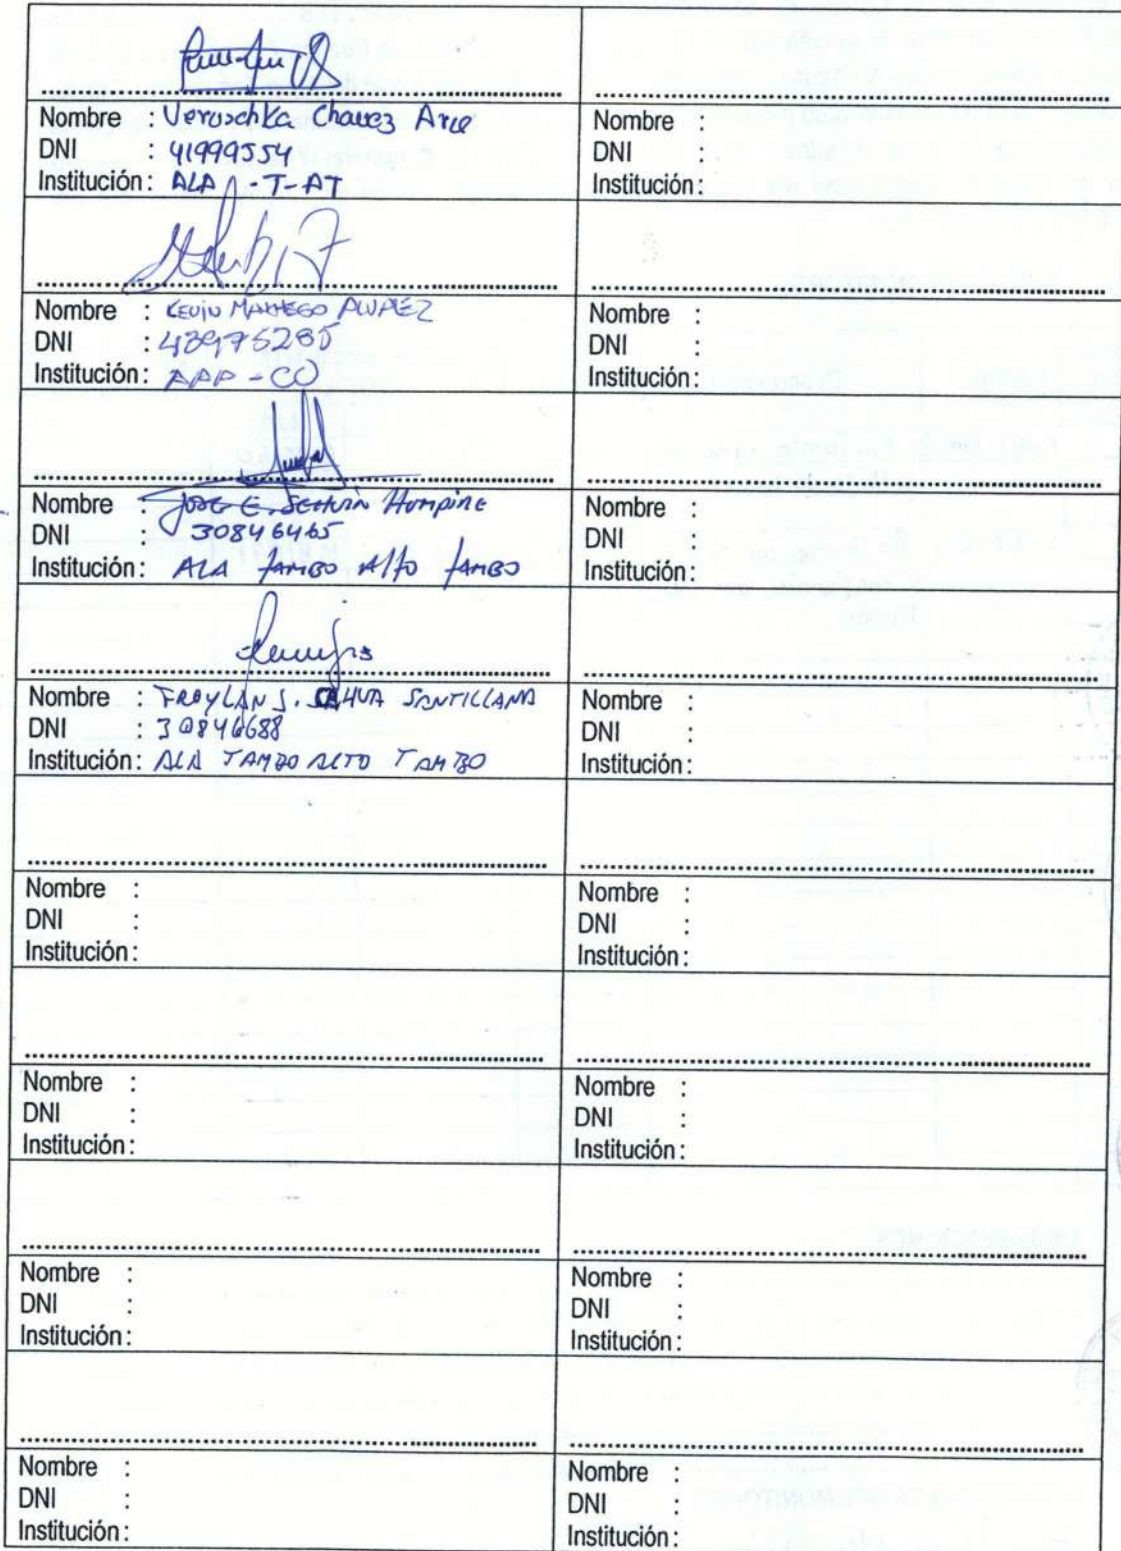 Nombre : Veruschka Chavez Arce
DNI : 41999554
Institución: ALA - T-AT
Nombre :
DNI :
Institución:
Nombre : KEVIN
DNI :
Institución: - CO
Nombre :
DNI :
Institución:
Nombre : JOSE E.
DNI : 30846465
Institución: ALA TAMBO Alto TAMBO
Nombre :
DNI :
Institución:
Nombre : FROYLAN J. CAHUA SANTILLANA
DNI : 30846688
Institución: ALA TAMBO ALTO TAMBO
Nombre :
DNI :
Institución:
Nombre :
DNI :
Institución:
Nombre :
DNI :
Institución:
Nombre :
DNI :
Institución:
Nombre :
DNI :
Institución:
Nombre :
DNI :
Institución:
Nombre :
DNI :
Institución:
Nombre :
DNI :
Institución:
Nombre :
DNI :
Institución: